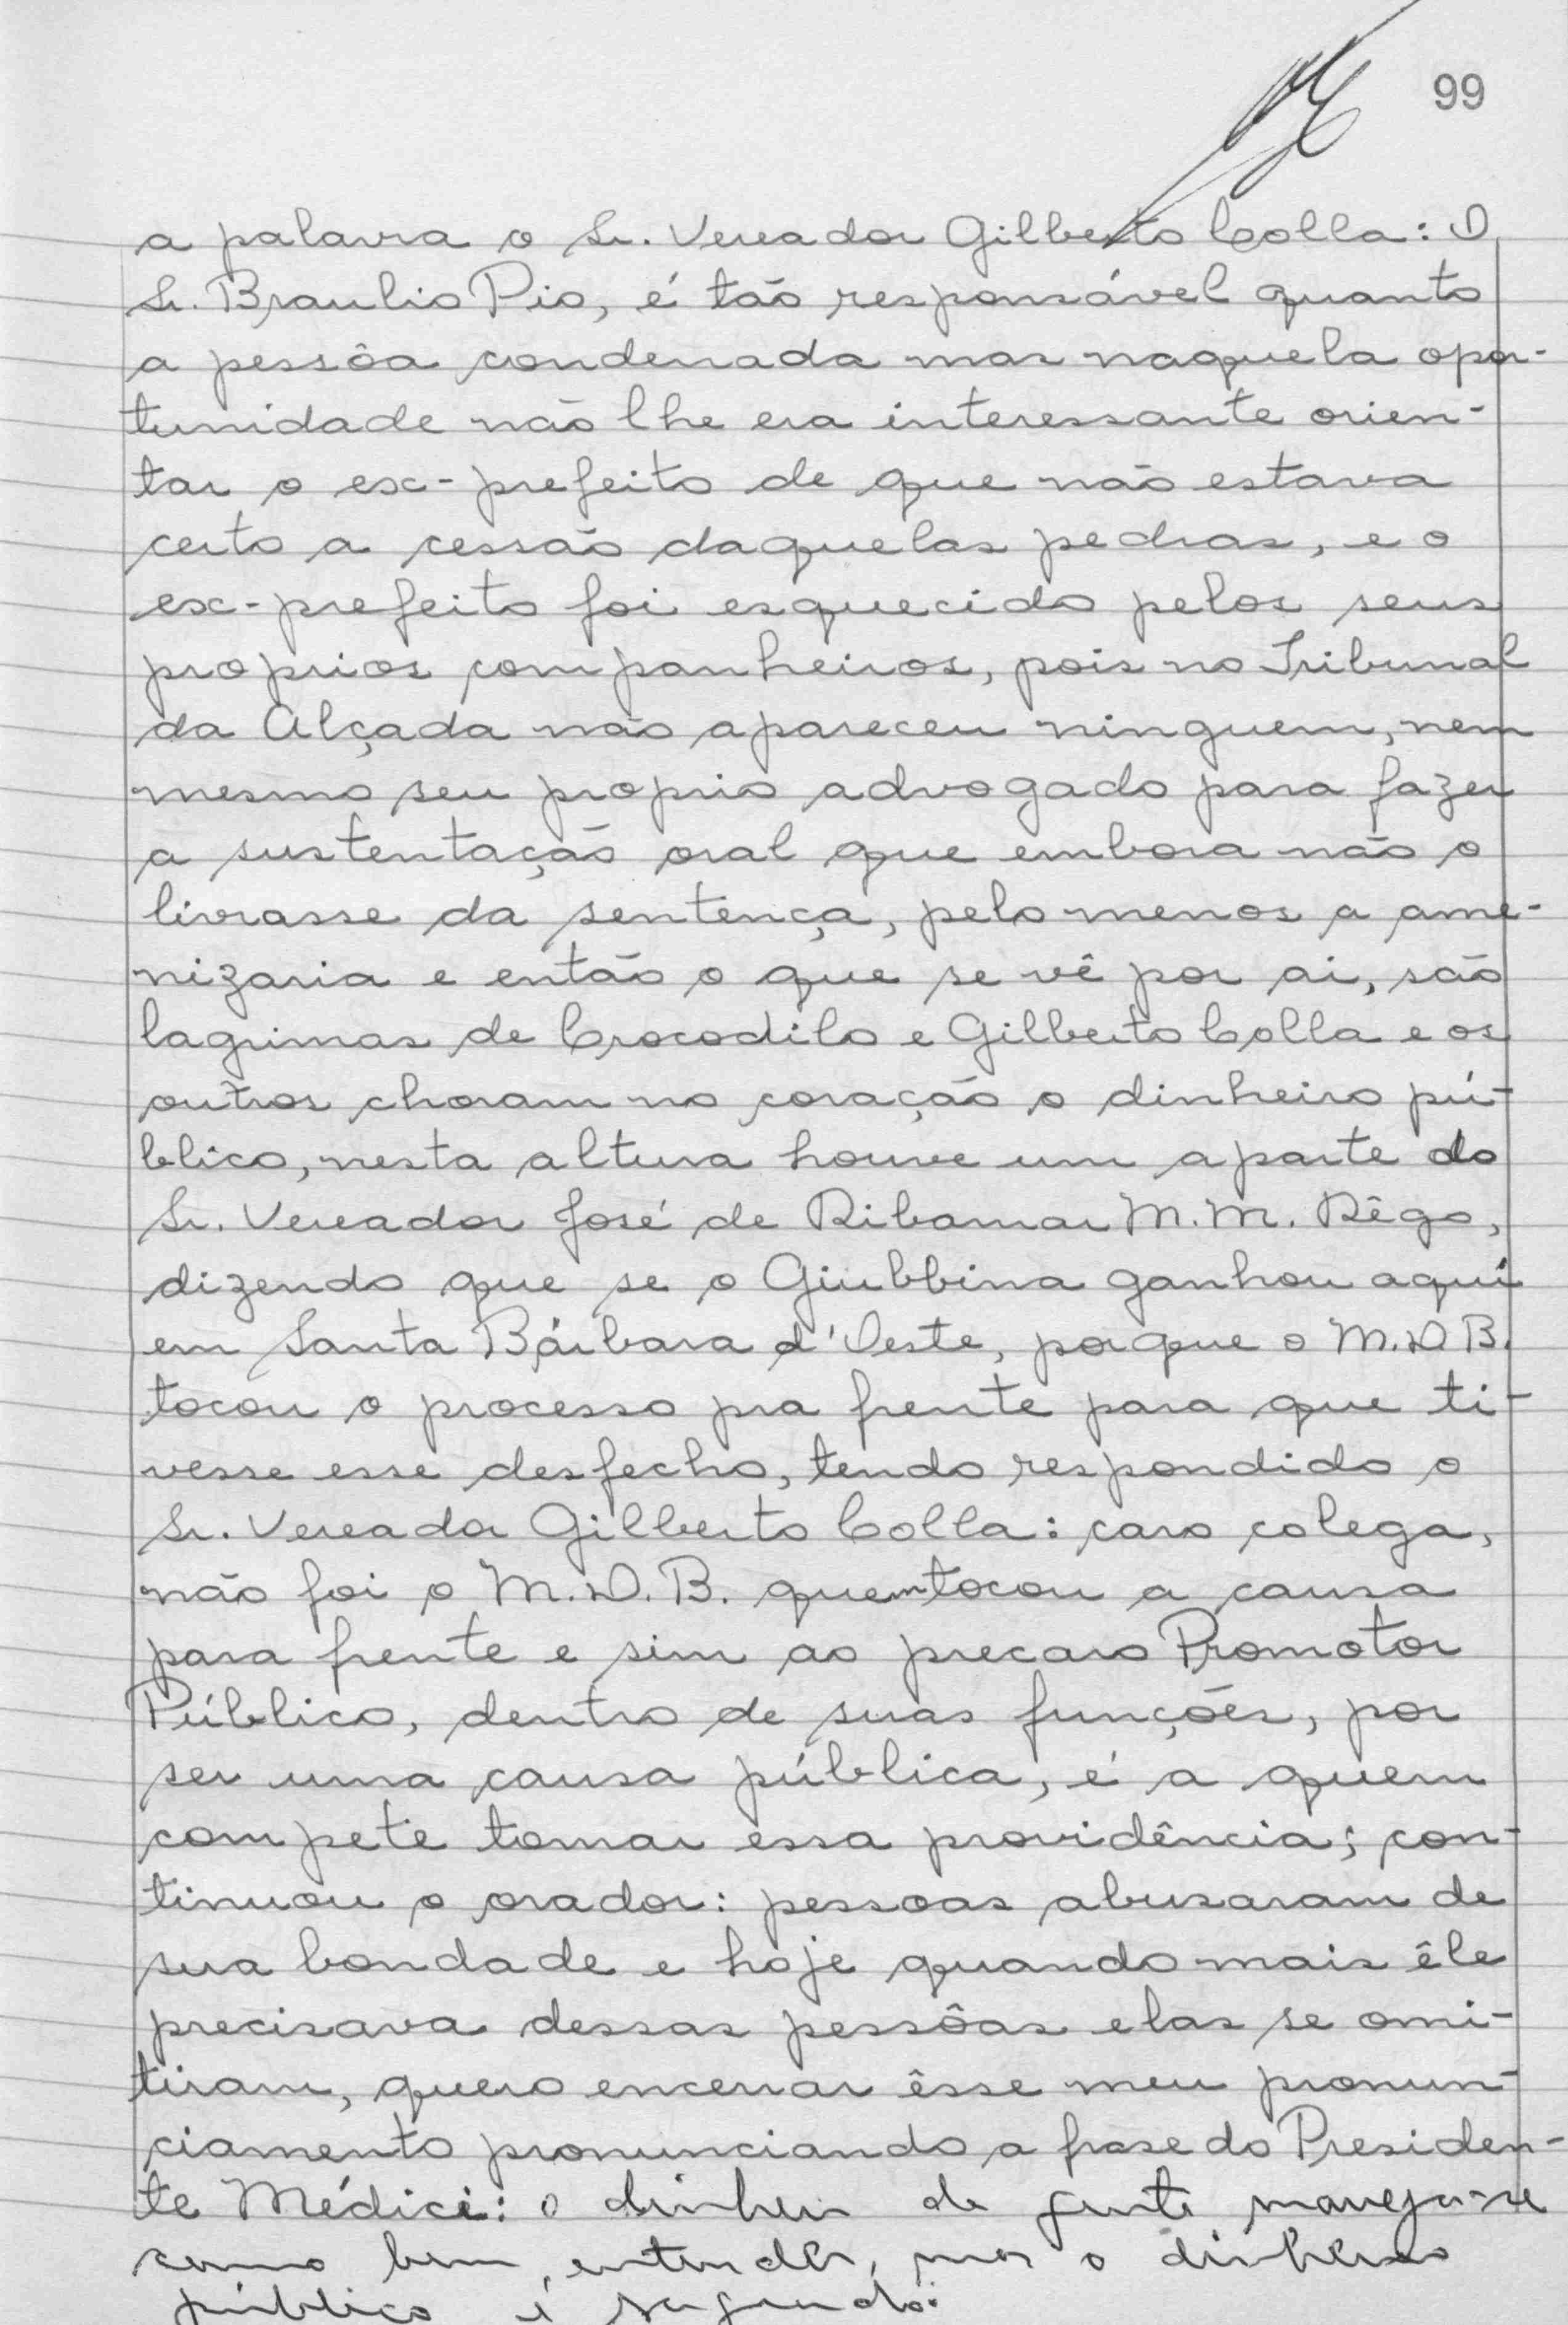 99
a palavra o Sr. Vereador Gilberto Colla: O
Sr. Braulio Pio, é tão responsável quanto
a pessôa condenada mas naquela opor-
tunidade não lhe era interessante orien-
tar o ex-prefeito de que não estava
certo a cessão daquelas pedras, e o
ex-prefeito foi esquecido pelos seus
proprios companheiros, pois no Tribunal
da Alçada não apareceu ninguem, nem
mesmo seu proprio advogado para fazer
a sustentação oral que embora não o
livrasse da sentença, pelo menos a ame-
nizaria e então o que se vê por ai, são
lagrimas de Crocodilo e Gilberto Colla e os
outros choram no coração o dinheiro pú-
blico, nesta altura houve um aparte do
Sr. Vereador José de Ribamar M.M. Rêgo,
dizendo que se o Giubbina ganhou aqui
em Santa Bárbara d'Oeste, porque o M.D.B.
tocou o processo pra frente para que ti-
vesse esse desfecho, tendo respondido o
Sr. Vereador Gilberto Colla: caro colega,
não foi o M.D.B. quem tocou a causa
para frente e sim ao precaro Promotor
Público, dentro de suas funções, por
ser uma causa pública, é a quem
compete tomar essa providência; con-
tinuou o orador: pessoas abusaram de
sua bondade e hoje quando mais êle
precisava dessas pessôas elas se omi-
tiram, quero encerrar êsse meu pronun-
ciamento pronunciando a frase do Presiden-
te Médici: o dinheiro da gente maneja-se
como bem entender, mas o dinheiro
público é sagrado: